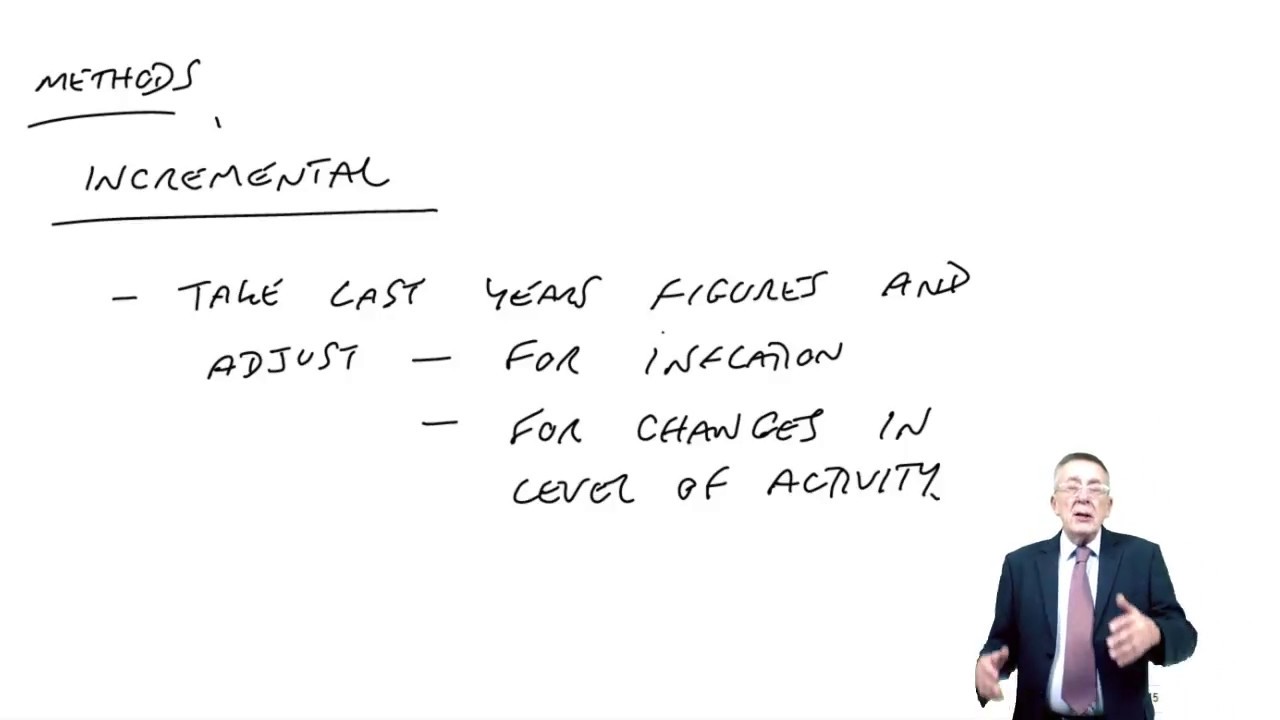 METHODS
INCREMENTAL
- TAKE LAST YEARS FIGURES AND
ADJUST - FOR INFLATION
- FOR CHANGES IN
LEVEL OF ACTIVITY.
15